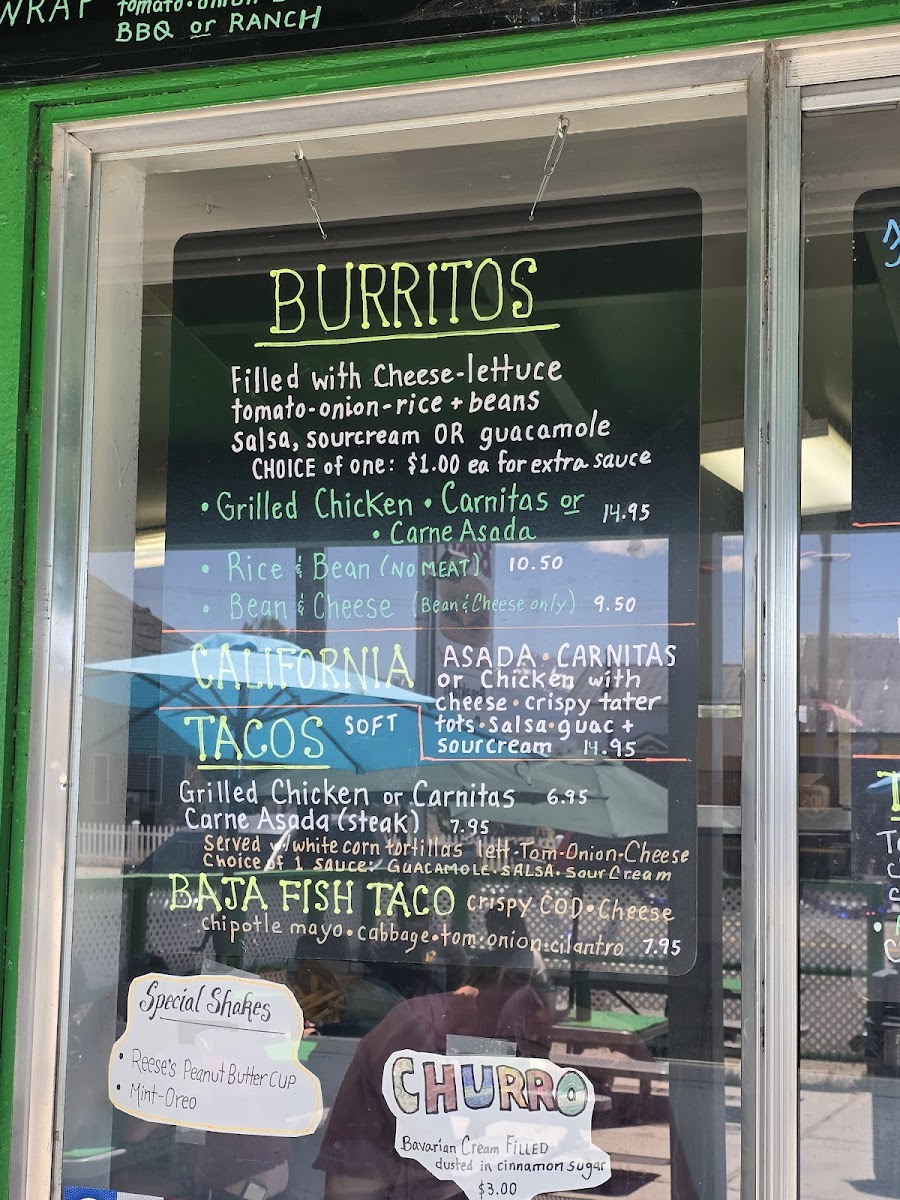 WRAP tomato·onion
BBQ or RANCH
BURRITOS
Filled with Cheese-lettuce
tomato-onion-rice + beans
Salsa, sourcream OR guacamole
CHOICE of one: $1.00 ea for extra sauce
• Grilled Chicken • Carnitas or
• Carne Asada 14.95
• Rice & Bean (NO MEAT) 10.50
• Bean & Cheese (Bean & Cheese only) 9.50
CALIFORNIA
ASADA · CARNITAS
or Chicken with
cheese · crispy tater
tots · Salsa · guac +
sourcream 14.95
TACOS SOFT
Grilled Chicken or Carnitas 6.95
Carne Asada (steak) 7.95
Served w/white corn tortillas lett-Tom-Onion-Cheese
Choice of 1 sauce: GUACAMOLE · SALSA · Sour Cream
BAJA FISH TACO crispy COD · Cheese
chipotle mayo · cabbage · tom · onion · cilantro 7.95
Special Shakes
• Reese's Peanut Butter CUP
• Mint-Oreo
CHURRO
Bavarian Cream FILLED
dusted in cinnamon sugar
$3.00